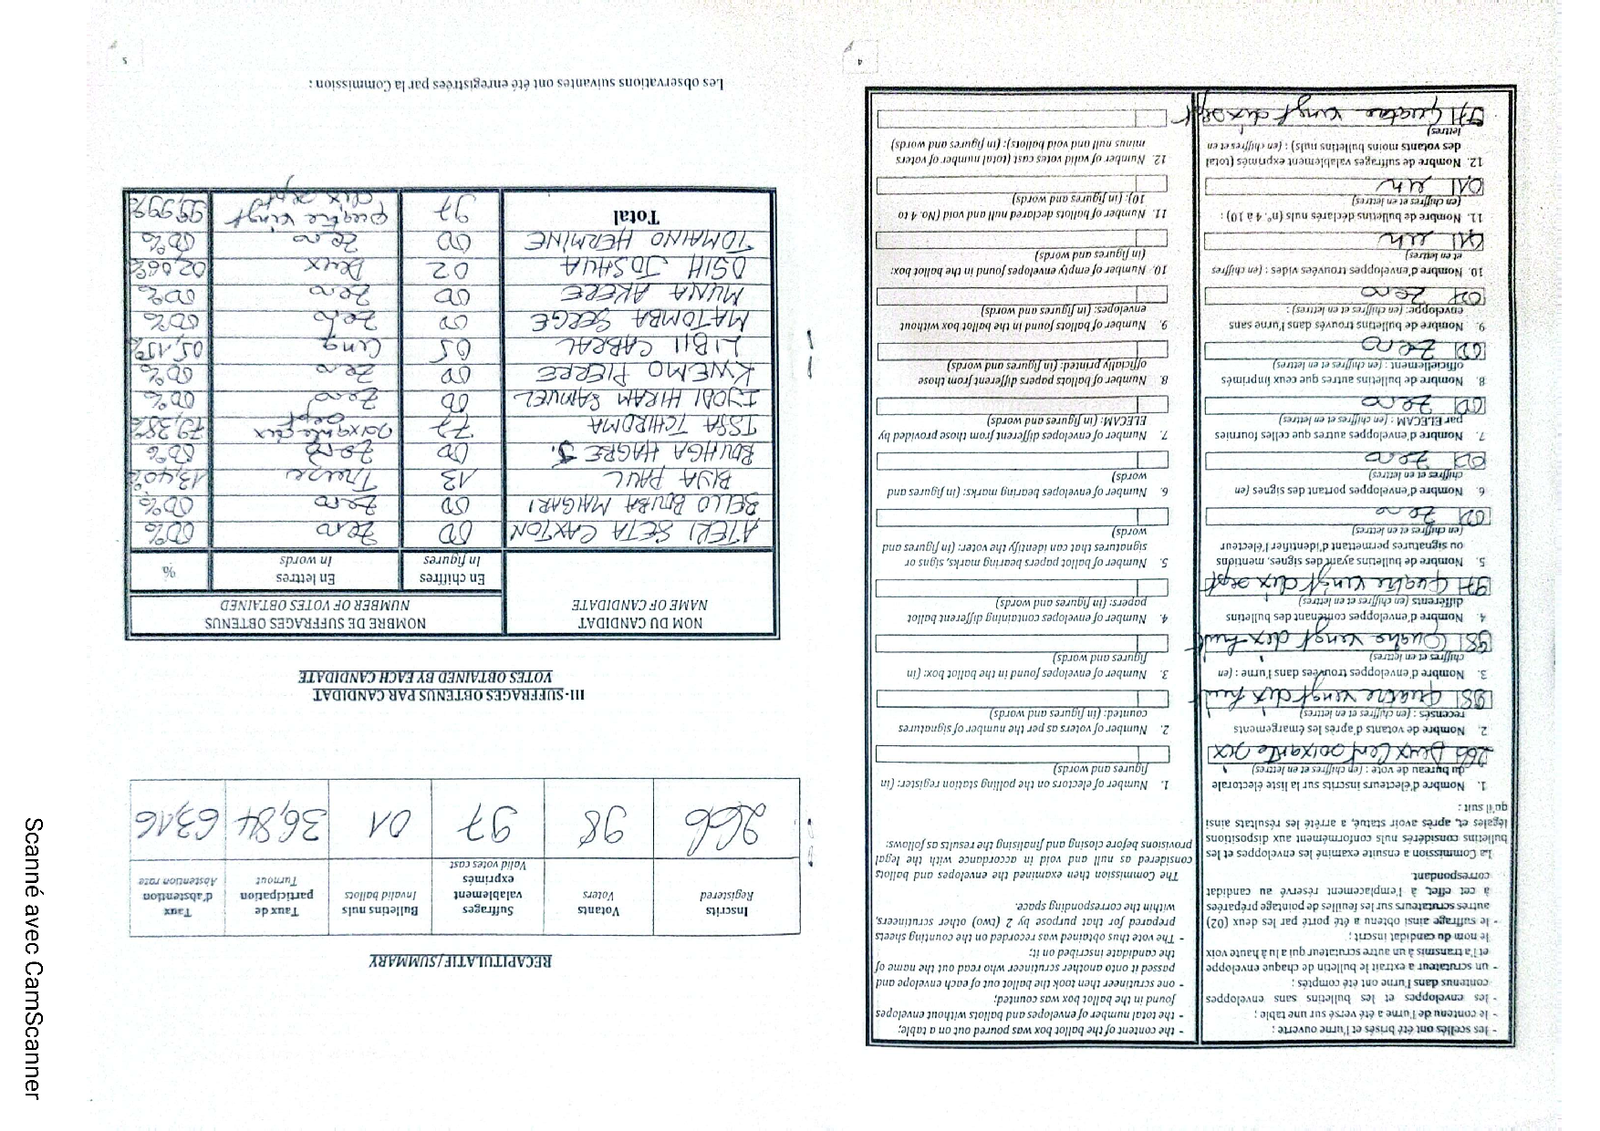 - les scellés ont été brisés et l'urne ouverte ;
- le contenu de l'urne a été versé sur une table ;
- les enveloppes et les bulletins sans enveloppes
contenus dans l'urne ont été comptés ;
- un scrutateur a extrait le bulletin de chaque enveloppe
et l'a transmis à un autre scrutateur qui a lu à haute voix
le nom du candidat inscrit ;
- le suffrage ainsi obtenu a été porté par les deux (02)
autres scrutateurs sur les feuilles de pointage préparées
à cet effet, à l'emplacement réservé au candidat
correspondant.
La Commission a ensuite examiné les enveloppes et les
bulletins considérés nuls conformément aux dispositions
légales et, après avoir statué, a arrêté les résultats ainsi
qu'il suit :
1. Nombre d'électeurs inscrits sur la liste électorale
du bureau de vote : (en chiffres et en lettres)
266 Deux Cent soixante six
2. Nombre de votants d'après les émargements
recensés : (en chiffres et en lettres)
98 Quatre vingt dix huit
3. Nombre d'enveloppes trouvées dans l'urne : (en
chiffres et en lettres)
98 Quatre vingt dix huit
4. Nombre d'enveloppes contenant des bulletins
différents (en chiffres et en lettres)
97 Quatre vingt dix sept
5. Nombre de bulletins ayant des signes, mentions
ou signatures permettant d'identifier l'électeur
(en chiffres et en lettres)
00 Zero
6. Nombre d'enveloppes portant des signes (en
chiffres et en lettres)
00 Zero
7. Nombre d'enveloppes autres que celles fournies
par ELECAM : (en chiffres et en lettres)
00 Zero
8. Nombre de bulletins autres que ceux imprimés
officiellement : (en chiffres et en lettres)
00 Zero
9. Nombre de bulletins trouvés dans l'urne sans
enveloppe: (en chiffres et en lettres) :
00 Zero
10. Nombre d'enveloppes trouvées vides : (en chiffres
et en lettres)
01 un
11. Nombre de bulletins déclarés nuls (n°. 4 à 10) :
(en chiffres et en lettres)
01 un
12. Nombre de suffrages valablement exprimés (total
des votants moins bulletins nuls) : (en chiffres et en
lettres)
97 Quatre vingt dix sept
- the content of the ballot box was poured out on a table;
- the total number of envelopes and ballots without envelopes
found in the ballot box was counted;
- one scrutineer then took the ballot out of each envelope and
passed it onto another scrutineer who read out the name of
the candidate inscribed on it;
- The vote thus obtained was recorded on the counting sheets
prepared for that purpose by 2 (two) other scrutineers,
within the corresponding space.
The Commission then examined the envelopes and ballots
considered as null and void in accordance with the legal
provisions before closing and finalising the results as follows:
1. Number of electors on the polling station register: (in
figures and words)
2. Number of voters as per the number of signatures
counted: (in figures and words)
3. Number of envelopes found in the ballot box: (in
figures and words)
4. Number of envelopes containing different ballot
papers: (in figures and words)
5. Number of ballot papers bearing marks, signs or
signatures that can identify the voter: (in figures and
words
6. Number of envelopes bearing marks: (in figures and
words
7. Number of envelopes different from those provided by
ELECAM: (in figures and words)
8. Number of ballots papers different from those
officially printed: (in figures and words)
9. Number of ballots found in the ballot box without
envelopes: (in figures and words)
10. Number of empty envelopes found in the ballot box:
(in figures and words)
11. Number of ballots declared null and void (No. 4 to
10): (in figures and words)
12. Number of valid votes cast (total number of voters
minus null and void ballots): (in figures and words)
4
RECAPITULATIF/SUMMARY
Inscrits Registered | Votants Voters | Suffrages valablement exprimés Valid votes cast | Bulletins nuls Invalid ballots | Taux de participation Turnout | Taux d'abstention Abstention rate
266 98 97 01 36,84 63,16
III- SUFFRAGES OBTENUS PAR CANDIDAT
VOTES OBTAINED BY EACH CANDIDATE
NOM DU CANDIDAT NOMBRE DE SUFFRAGES OBTENUS
NAME OF CANDIDATE NUMBER OF VOTES OBTAINED
En chiffres En lettres %
In figures In words
ATEKI SETA CAXTON 00 Zero 00%
BELLO BOUBA MAIGARI 00 Zero 00%
BIYA PAUL 13 Treize 13,40%
BOUHGA HAGBE J. 00 Zero 00%
ISSA TCHIROMA 77 soixante dix sept 79,38%
IYODI HIRAM SAMUEL 00 Zero 00%
KWEMO PIERRE 00 Zero 00%
LIBII CABRAL 05 Cinq 05,15%
MATOMBA SERGE 00 Zero 00%
MUNA AKERE 00 Zero 00%
OSIH JOSHUA 02 Deux 02,06%
TOMAINO HERMINE 00 Zero 00%
Total 97 quatre vingt dix sept 99,99%
Les observations suivantes ont été enregistrées par la Commission :
5
Scanné avec CamScanner